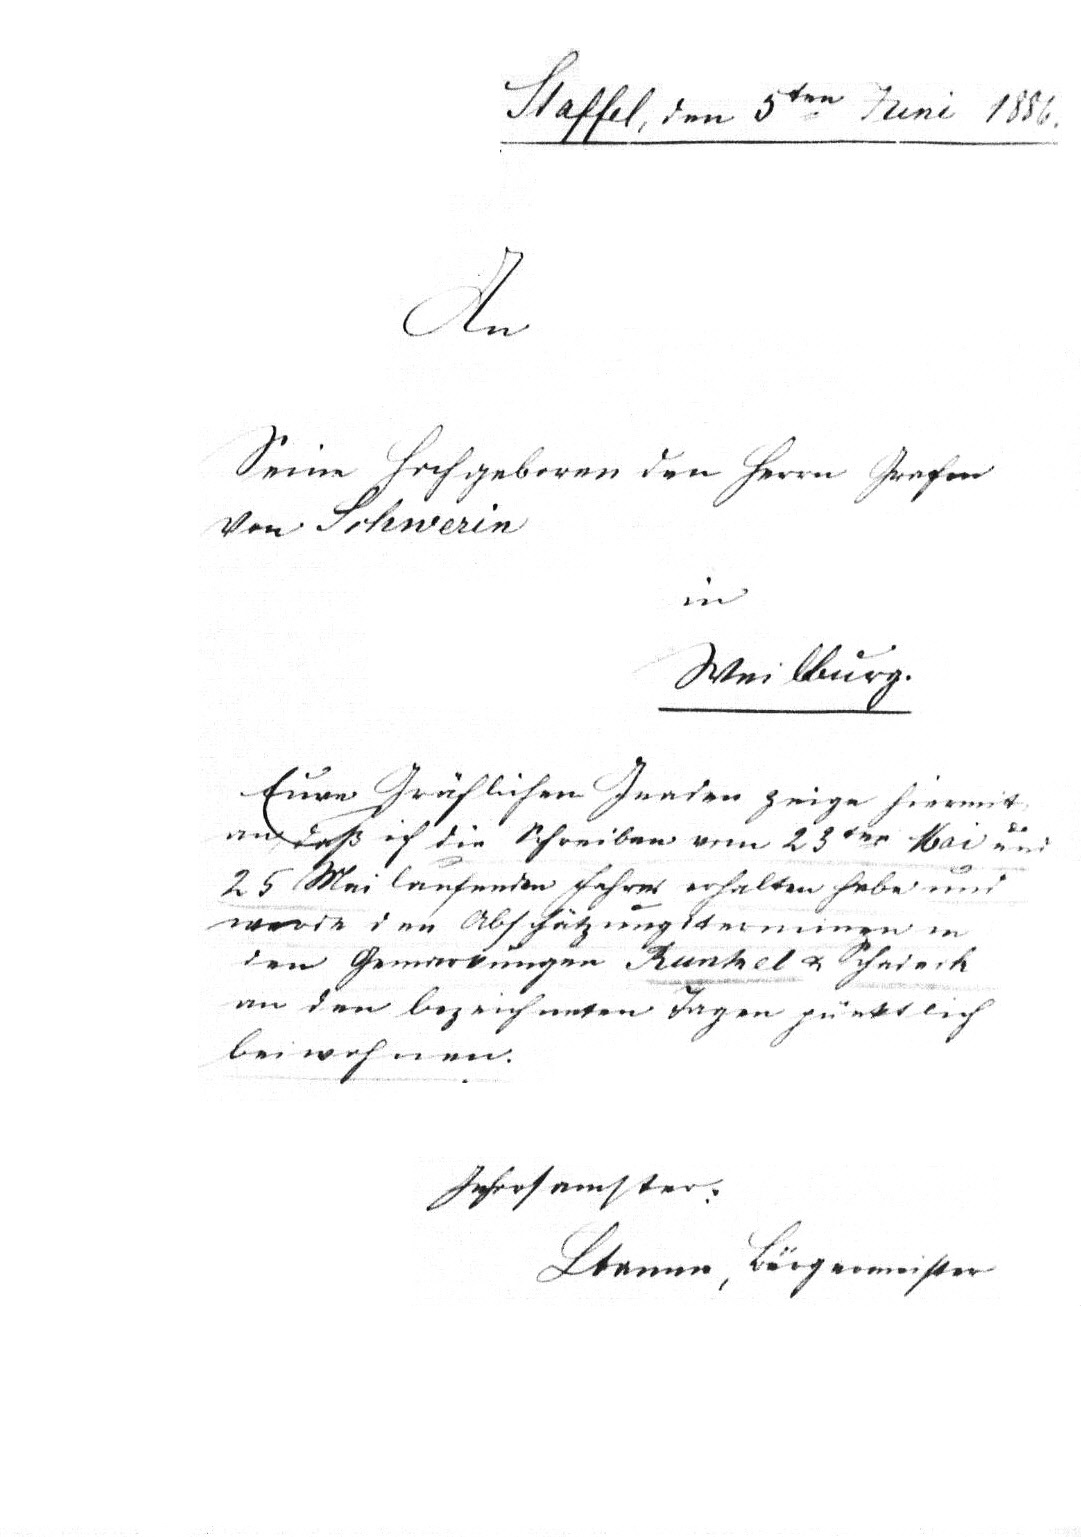 Staffel, den 5ten Juni 1886.
An
Seine Hochgeboren den Herrn Grafen
von Schwerin
in
Weilburg.
Eure Gräflichen Gnaden zeige hiermit
an, daß ich die Schreiben vom 23ten Mai und
25 Mai laufenden Jahres erhalten habe und
werde den Abschätzungsterminen in
den Gemarkungen Runkel & Schadeck
an den bezeichneten Tagen pünktlich
beiwohnen.
Gehorsamster:
Bürgermeister